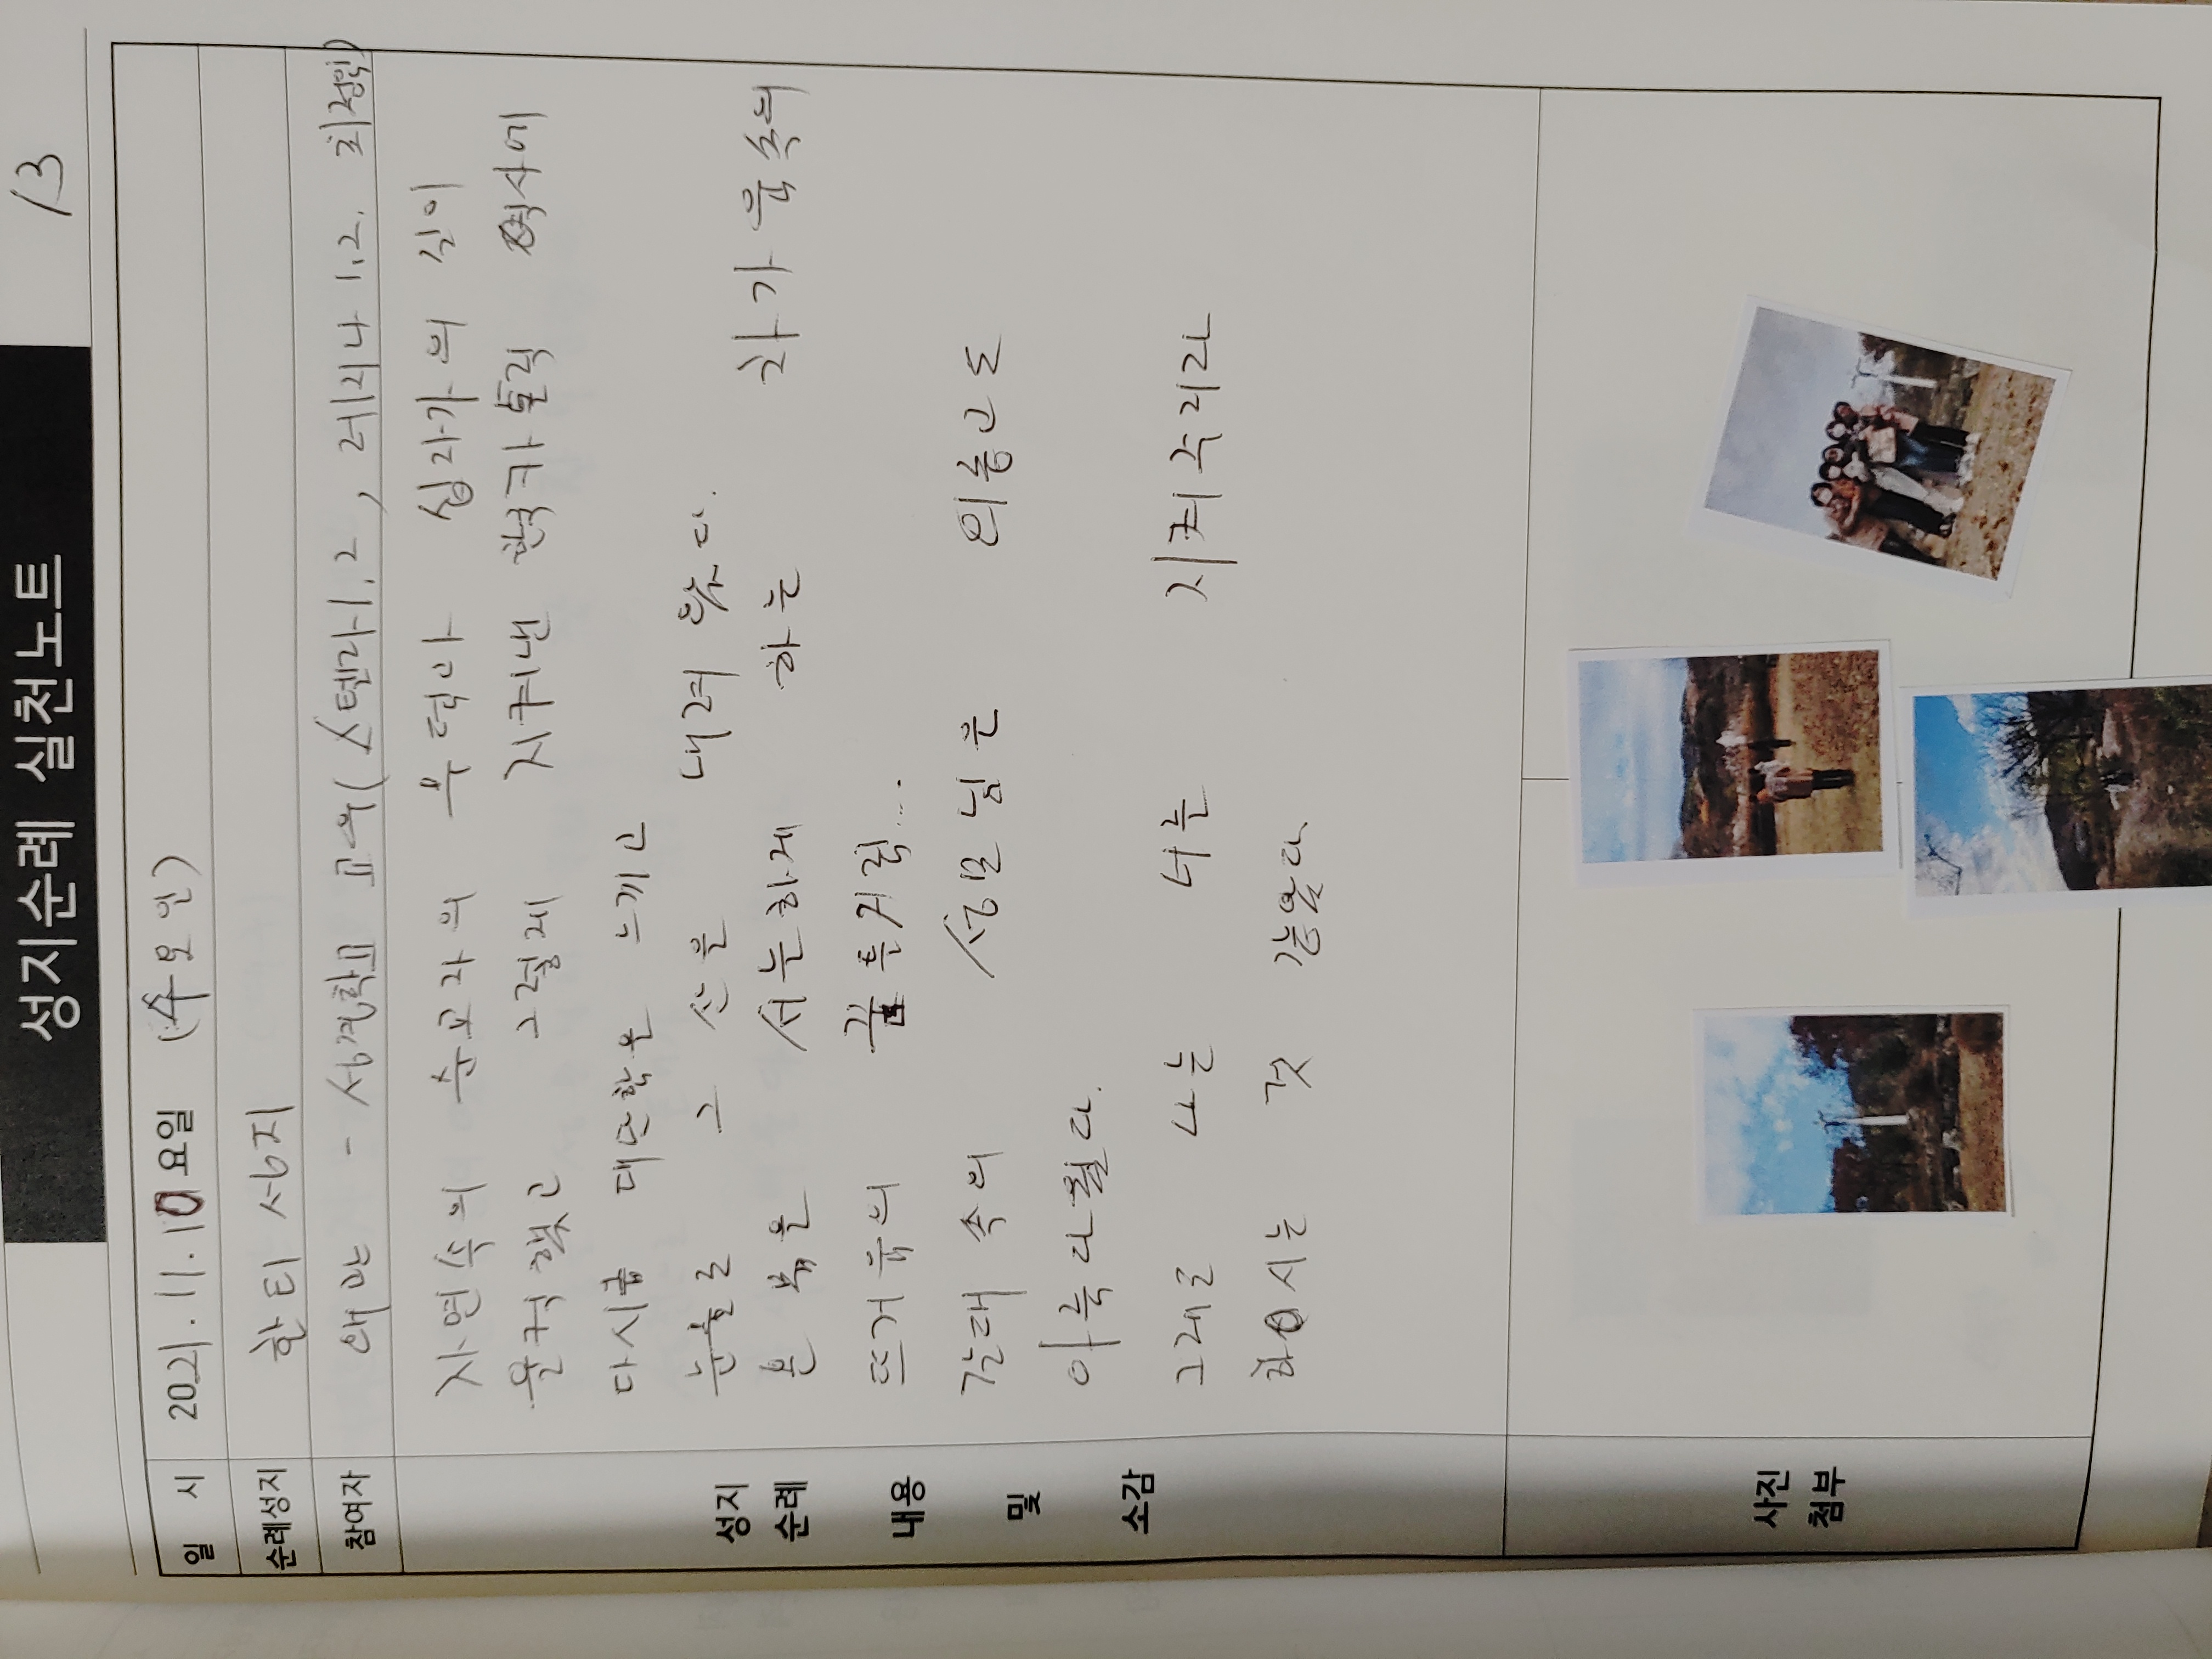 성지순례 실천노트
13
일 시 2021.11.10 요일 (수요일)
순례성지 한티 성지
참여자 왜관 - 성경학교 교우(스텔라1.2, 레지나 1.2. 최정)
성지
순례
내용
및
소감
자연속의 순교자의 무덤과 십자가의 길이
울컥했고 그렇게 지켜낸 한국카톨릭 역사에
다시금 대단함을 느끼고
눈물로 그 산을 내려 왔다.
서늘하게 하는 차가움속의
뜨거움의 꿈틀처럼...
갈대 속의 성모님은 외롭고도
아름다웠다.
그래도 나는 너를 지켜주리라
하시는 것 같았다.
사진
첨부